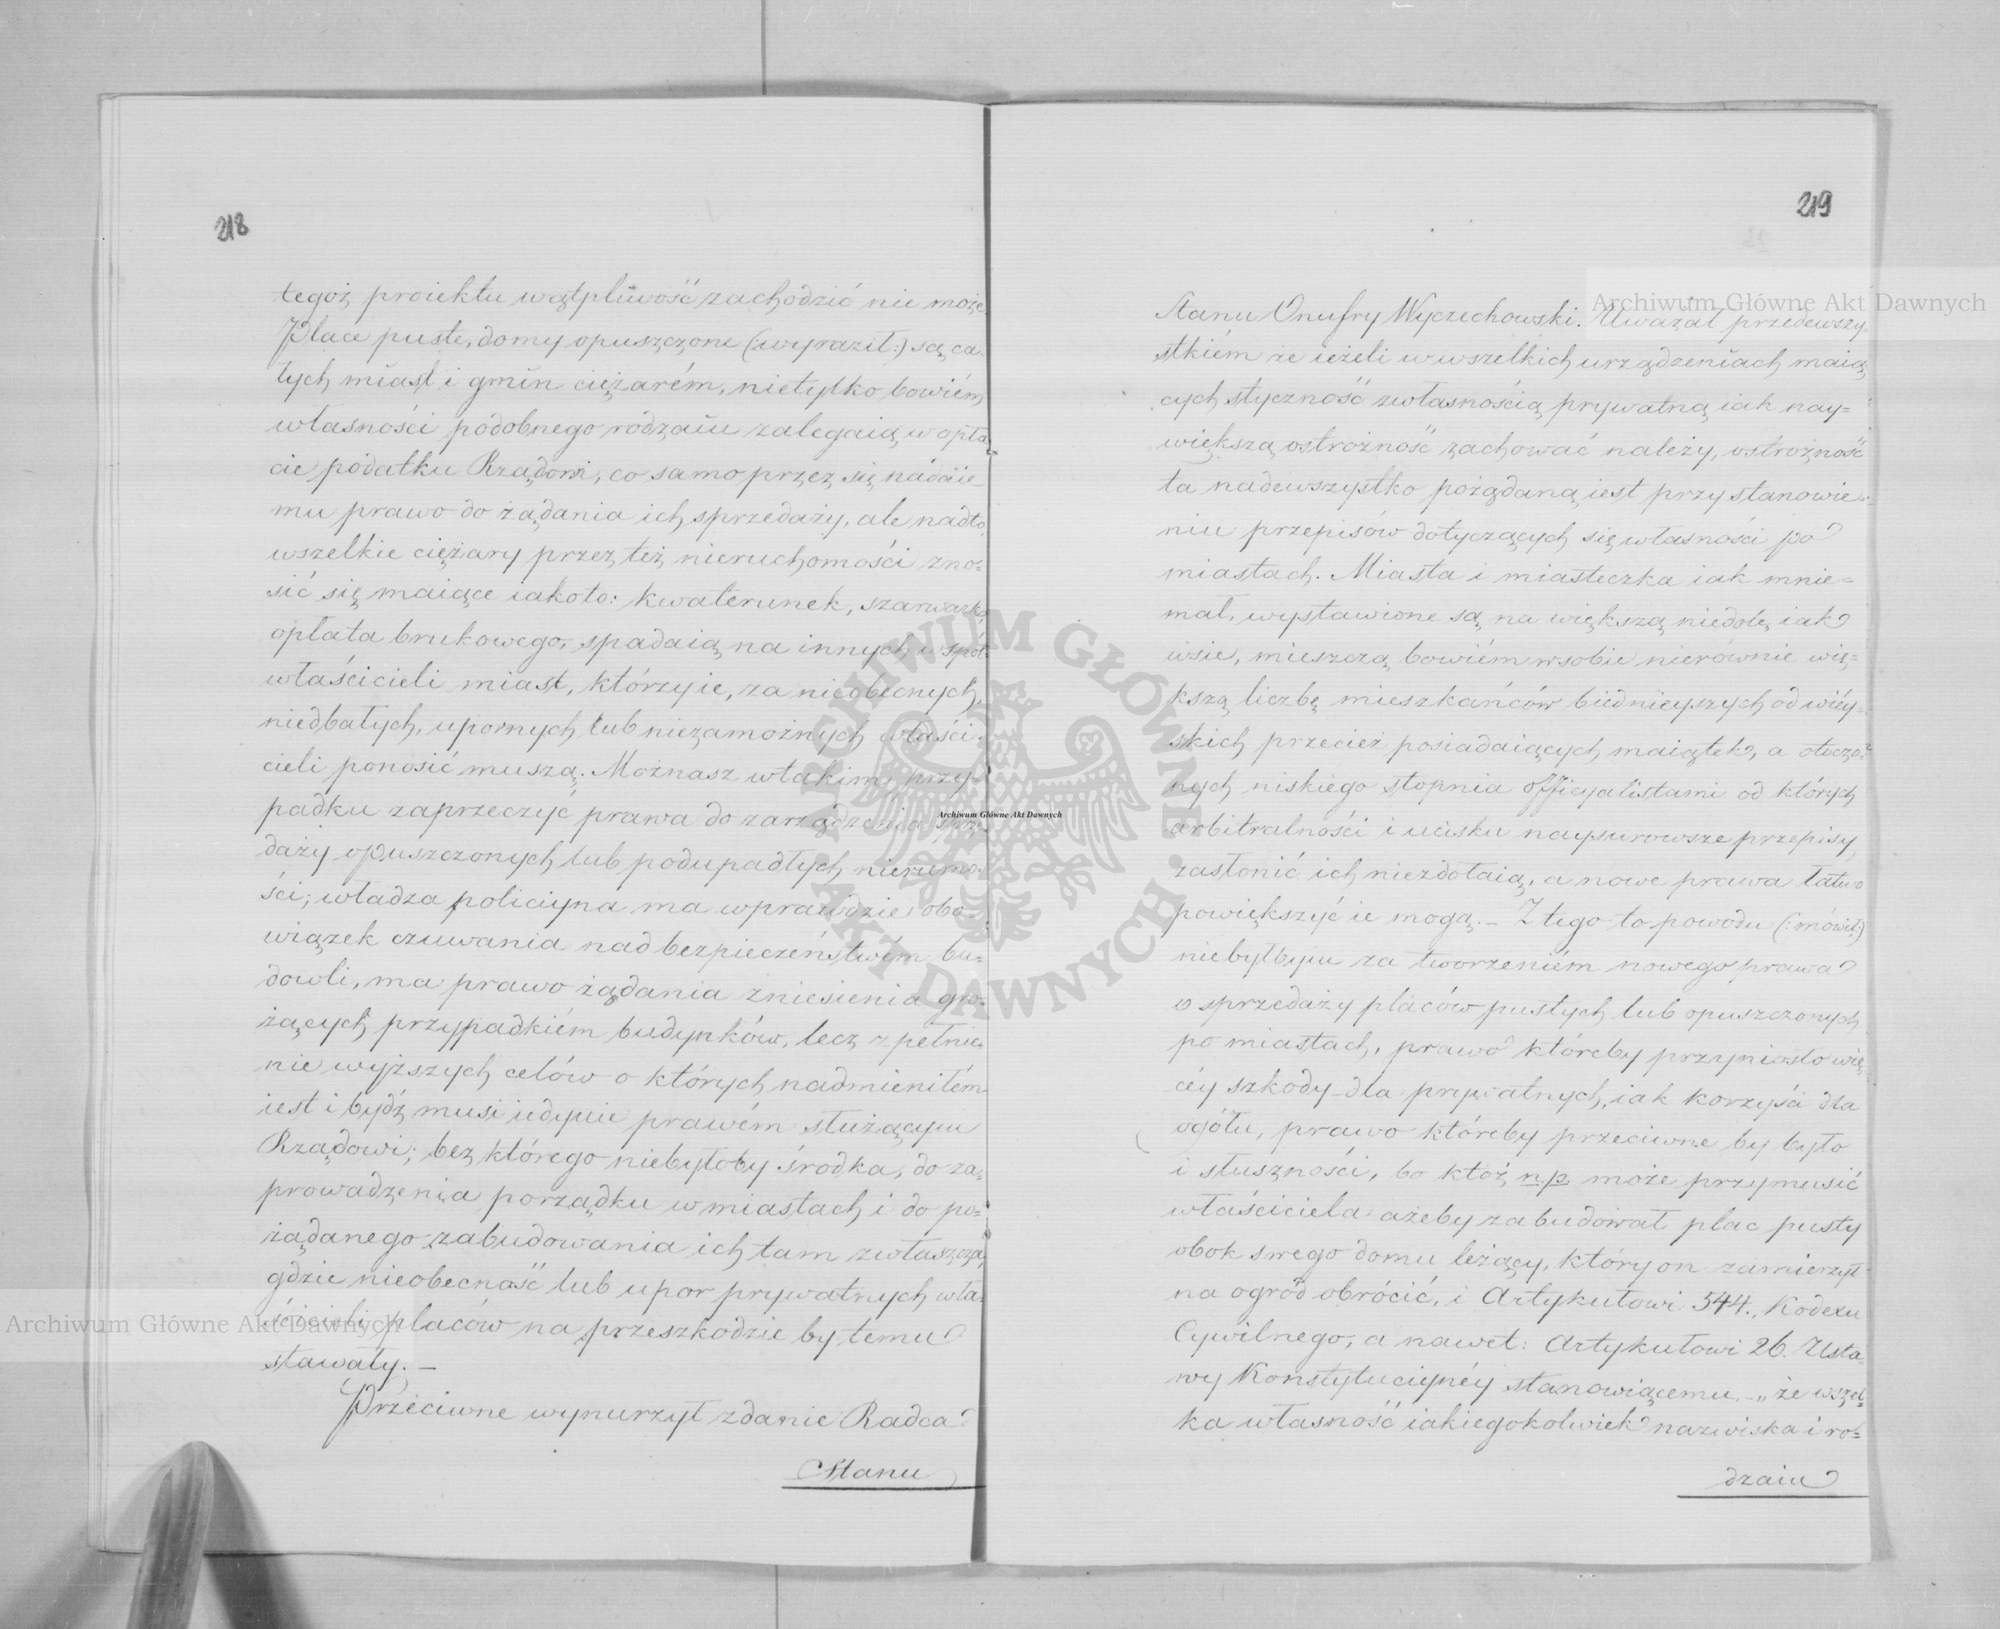 218
tegoż proiektu wątpliwość zachodzić nie może
Place puste, domy opuszczone (:wyraził:) są ca-
łych miast i gmin ciężarém, nietylko bowiém
własności podobnego rodzaiu zalegaią w opła-
cie podatku Rządowi, co samo przez się nadaie
mu prawo do żądania ich sprzedaży, ale nadto
wszelkie ciężary przez też nieruchomości zno-
sić się maiące iakoto: kwaterunek, szarwark,
opłata brukowego, spadaią na innych współ-
właścicieli miast, którzy ie, za nieobecnych,
niedbałych, upornych lub niezamożnych właści-
cieli ponosić muszą. Możnasz w takim przy-
padku zaprzeczyć prawa do zarządzenia sprze-
daży opuszczonych lub podupadłych nierucho-
ści; władza policiyna ma wprawdzie obo-
wiązek czuwania nad bezpieczeństwem bu-
dowli, ma prawo żądania zniesienia gro-
żących przypadkiém budynków, lecz spełnie-
nie wyższych celów o których nadmieniłém
iest i bydź musi iedynie prawém służącym
Rządowi; bez którego niebyłoby środka, do za-
prowadzenia porządku w miastach i do po-
żądanego zabudowania ich tam zwłaszcza,
gdzie nieobecność lub upor prywatnych wła-
ścicieli placów na przeszkodzie by temu
stawały. —
Przeciwne wynurzył zdanie Radca
Stanu
219
Stanu Onufry Wyczechowski. Uważał przedewszy-
stkiém że ieżeli w wszelkich urządzeniach maią-
cych styczność z własnością prywatną iak nay=
większą ostrożność zachować należy, ostrożność
ta nadewszystko pożądaną iest przy stanowie-
niu przepisów dotyczących się własności po
miastach. Miasta i miasteczka iak mnie=
mał, wystawione są na większą niedolę iak
wsie, mieszczą bowiém w sobie nierównie wię=
kszą liczbę mieszkańców biednieyszych od wiey-
skich przecież posiadaiących maiątek, a otoczo-
nych niskiego stopnia officyalistami od których
arbitralności i ucisku naysurowsze przepisy
zasłonić ich niezdołaią, a nowe prawa łatwo
powiększyć ie mogą. — Z tego to powodu (:mówił:)
niebyłbym za tworzeniém nowego prawa
o sprzedaży placów pustych lub opuszczonych
po miastach, prawo któreby przyniosło wię-
céy szkody dla prywatnych, iak korzyści dla
ogółu, prawo któreby przeciwne by było
i słuszności, bo któż n.p. może przymusić
właściciela ażeby zabudował plac pusty
obok swego domu leżący, który on zamierzył
na ogród obrócić, i Artykułowi 544. Kodexu
Cywilnego, a nawet: Artykułowi 26. Usta-
wy Konstytucyinéy stanowiącemu — „że wszel-
ka własność iakiegokolwiek nazwiska i ro=
dzaiu
Archiwum Główne Akt Dawnych
Archiwum Główne Akt Dawnych
Archiwum Główne Akt Dawnych
ARCHIWUM GŁÓWNE AKT DAWNYCH